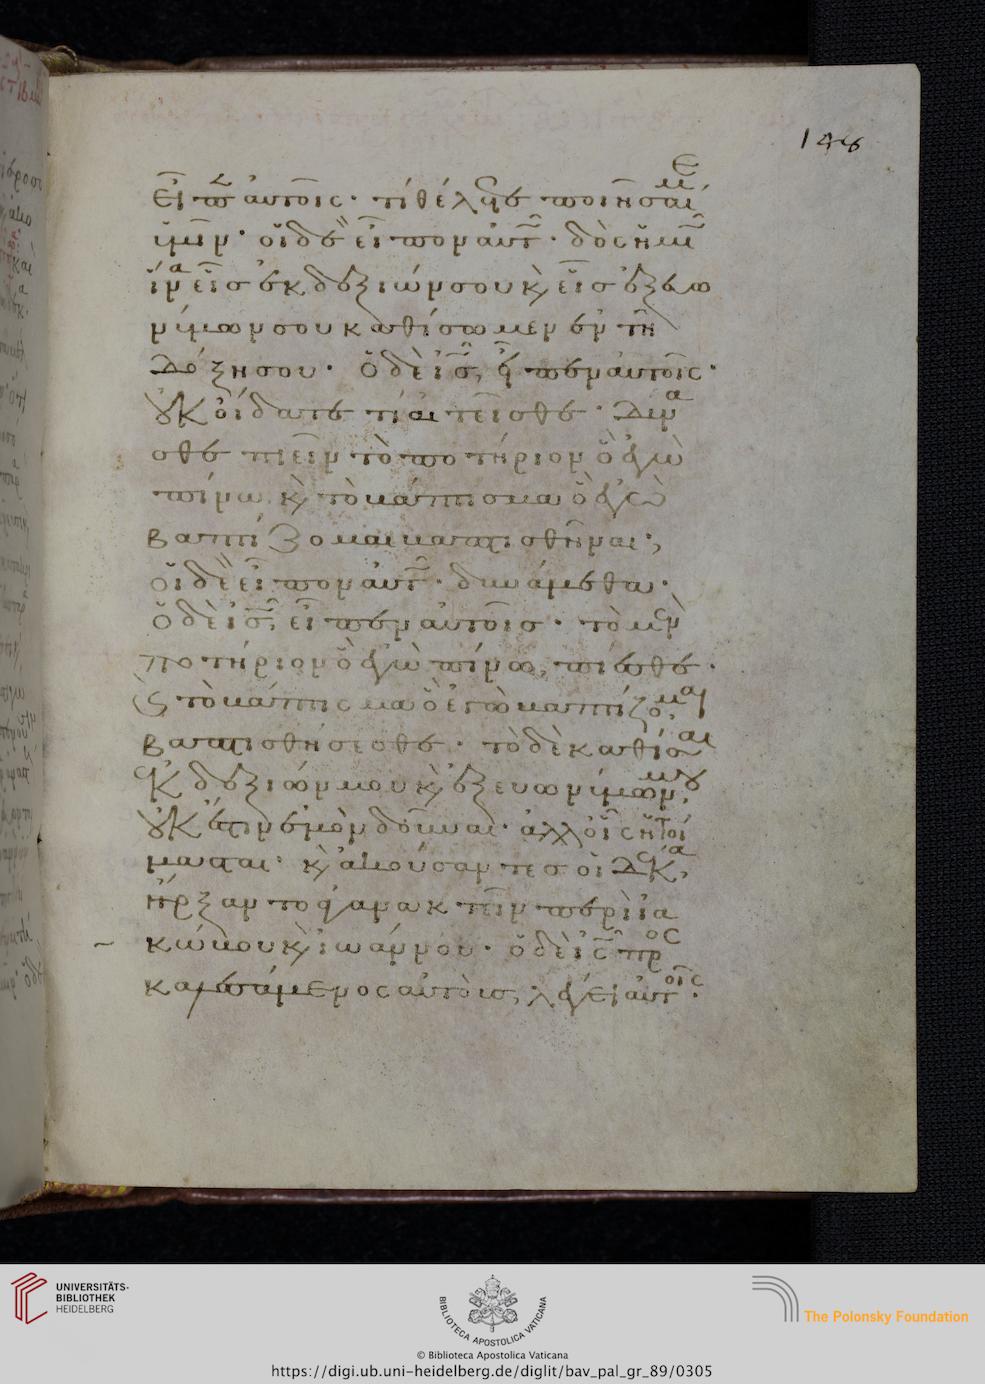 148
εἶπ αὐτοῖς· τί θέλετε ποιῆσαι με
ὑμῖν· οἱ δὲ εἶπον αὐτ· δὸς ἡμῖ
ἵνα εἷς ἐκ δεξιῶν σου κ εἷς ἐξ εὐω
νύμων σου καθίσωμεν ἐν τῆ
δόξη σου· ὁ δὲ ις εἶπεν αὐτοῖς·
οὐκ οἴδατε τί αἰτεῖσθε· δυνα
σθε πιεῖν τὸ ποτήριον ὃ ἐγὼ
πίνω κ τὸ βάπτισμα ὃ ἐγὼ
βαπτίζομαι βαπτισθῆναι·
οἱ δὲ εἶπον αὐτ· δυνάμεθα·
ὁ δὲ ις εἶπεν αὐτοῖς· τὸ μὲν
ποτήριον ὃ ἐγὼ πίνω, πίεσθε·
κ τὸ βάπτισμα ὃ ἐγὼ βαπτίζομαι
βαπτισθήσεσθε· τὸ δὲ καθίσαι
ἐκ δεξιῶν μου κ ἐξ εὐωνύμων μου
οὐκ ἔστιν ἐμὸν δοῦναι· ἀλλ οἷς ἡτοί
μασται· κ ἀκούσαντες οἱ δέκα,
ἤρξαντο ἀγανακτεῖν περὶ ἰα
κώβου κ ἰωάννου· ὁ δὲ ις προσ
καλεσάμενος αὐτοὺς, λέγει αὐτοῖς·
UNIVERSITÄTS-
BIBLIOTHEK
HEIDELBERG
BIBLIOTECA APOSTOLICA VATICANA
The Polonsky Foundation
© Biblioteca Apostolica Vaticana
https://digi.ub.uni-heidelberg.de/diglit/bav_pal_gr_89/0305